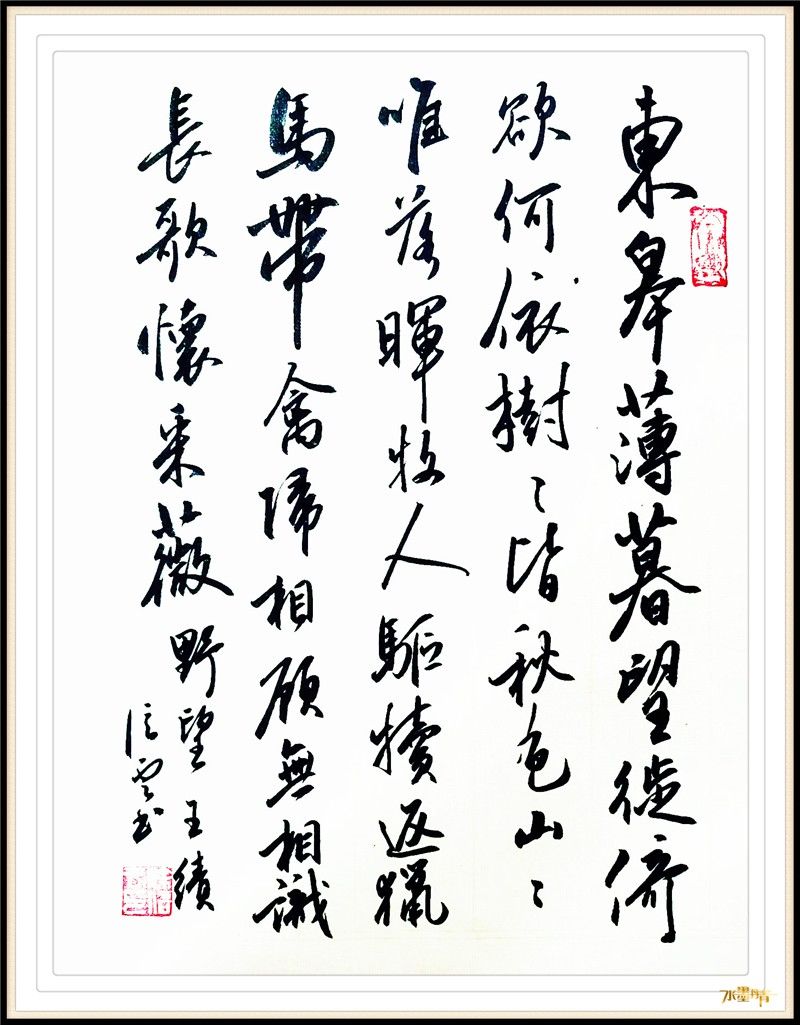 東皋薄暮望徙倚
欲何依樹〻皆秋色山〻
唯落暉牧人驅犢返獵
馬帶禽歸相顧無相識
長歌懷采薇野望王績
书
水墨丹青